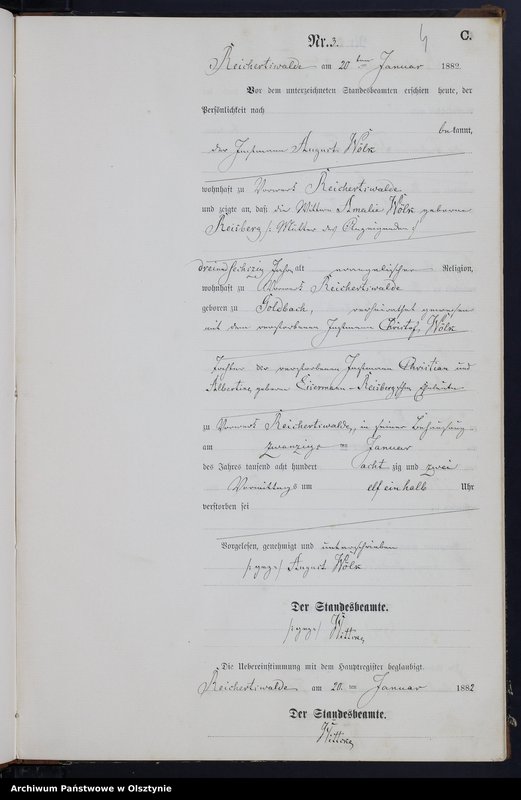 4
C.
Nr. 3.
Reichertswalde am 20 ten Januar 1882.
Vor dem unterzeichneten Standesbeamten erschien heute, der
Persönlichkeit nach
bekannt,
der Instmann August Wölk
wohnhaft zu Vorwerk Reichertswalde
und zeigte an, daß die Wittwe Amalie Wölk geborene
Reisberg /: Mutter des Anzeigenden :/
dreiundsechszig Jahre alt evangelischer Religion,
wohnhaft zu Vorwerk Reichertswalde
geboren zu Goldbach, verheirathet gewesen
mit dem verstorbenen Instmann Christof Wölk
Tochter der verstorbenen Instmann Christian und
Albertine, geborene Eisermann-Reisbergschen Eheleute
zu Vorwerk Reichertswalde, in seiner Behausung
am zwanzigs ten Januar
des Jahres tausend acht hundert acht zig und zwei
Vormittags um elf einhalb Uhr
verstorben sei
Vorgelesen, genehmigt und unterschrieben
/:gez:/ August Wölk
Der Standesbeamte.
/:gez:/
Die Uebereinstimmung mit dem Hauptregister beglaubigt.
Reichertswalde am 20. ten Januar 1882
Der Standesbeamte.
Archiwum Państwowe w Olsztynie